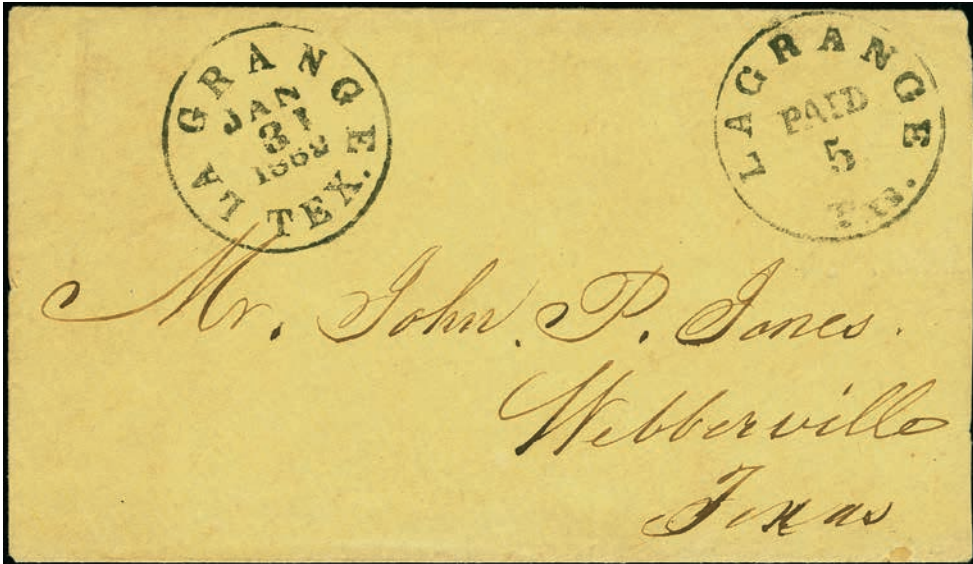 LA GRANGE
JAN
31
1862
TEX.
LAGRANGE
PAID
5
Txs.
Mr. John. P. Jones.
Webberville
Texas